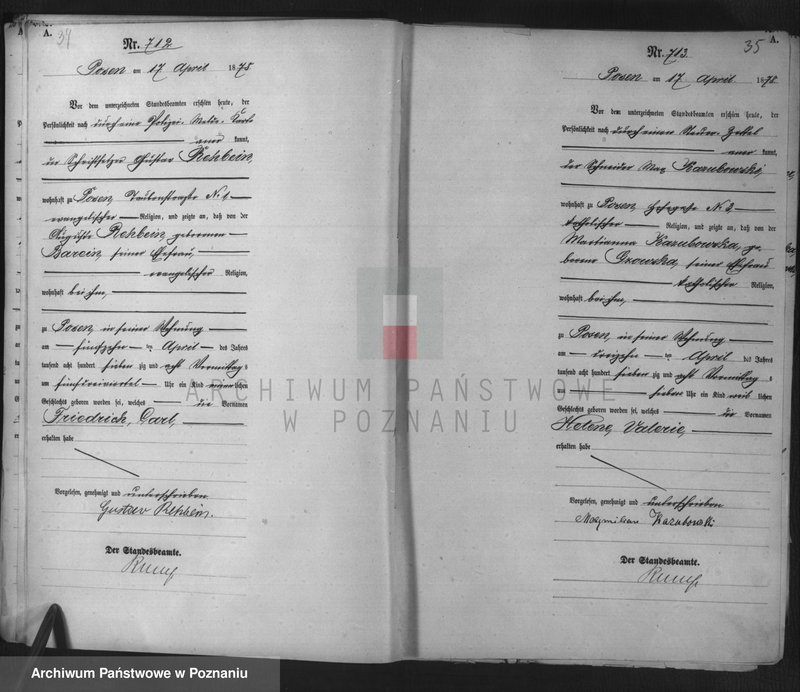 A. 34
Nr. 712
Posen am 17 April 1878
Vor dem unterzeichneten Standesbeamten erschien heute, der
Persönlichkeit nach durch eine Polizei-Melde-Karte
kannt,
der Schriftsetzer Gustav Rehbein
wohnhaft zu Posen, Taubenstraße N.
evangelischer Religion, und zeigte an, daß von der
Auguste Rehbein geborenen
seiner Ehefrau,
evangelischer Religion,
wohnhaft bei ihm,
zu Posen, in seiner Wohnung
am fünfzehn ten April des Jahres
tausend acht hundert sieben zig und acht Vormittags
um Uhr ein Kind männlichen
Geschlechts geboren worden sei, welches die Vornamen
Friedrich, Carl,
erhalten habe
Vorgelesen, genehmigt und unterschrieben
Gustav Rehbein.
Der Standesbeamte.
35 A.
Nr. 713.
Posen am 17 April 1878
Vor dem unterzeichneten Standesbeamten erschien heute, der
Persönlichkeit nach durch einen Steuer-Zettel
kannt,
der Schneider Max Kazubowski,
wohnhaft zu Posen, N. 2
katholischer Religion, und zeigte an, daß von der
Marianna Kazubowska, ge-
borene seiner Ehefrau
katholischer Religion,
wohnhaft bei ihm,
zu Posen, in seiner Wohnung
am dreizehn ten April des Jahres
tausend acht hundert sieben zig und acht Vormittags
um sieben Uhr ein Kind weiblichen
Geschlechts geboren worden sei, welches die Vornamen
Helene, Valerie,
erhalten habe
Vorgelesen, genehmigt und unterschrieben
Maxymilian Kazubowski
Der Standesbeamte.
ARCHIWUM PAŃSTWOWE
W POZNANIU
Archiwum Państwowe w Poznaniu